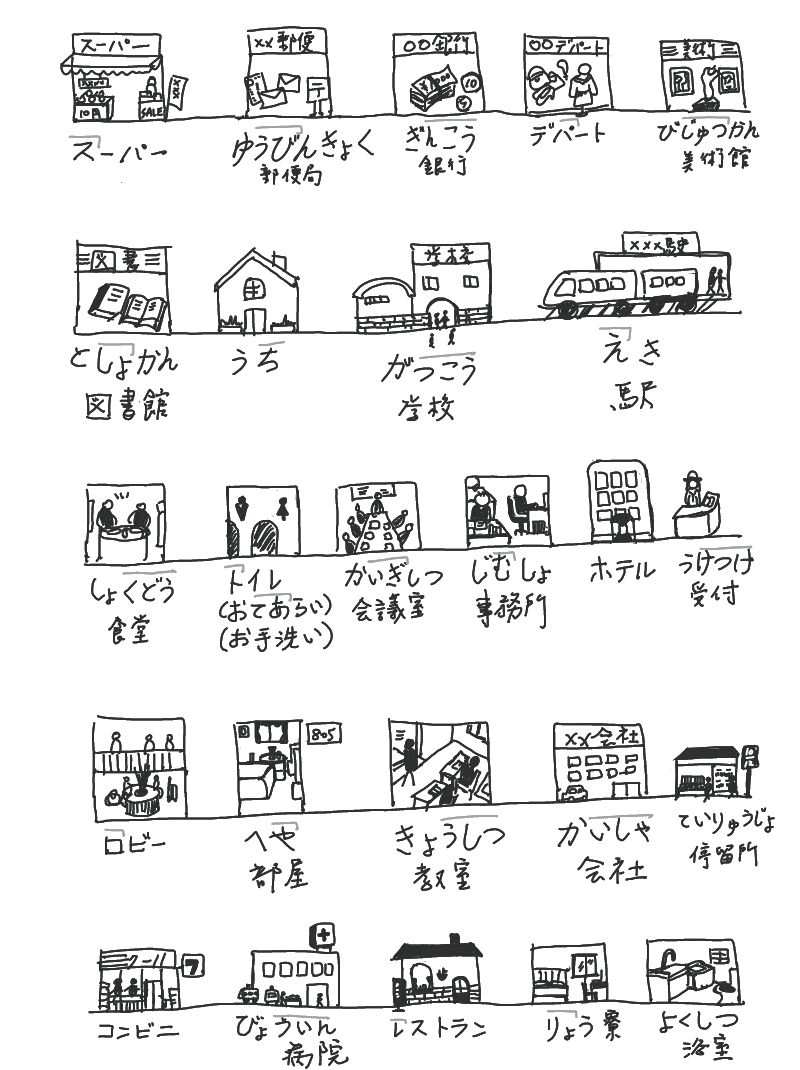 スーパー
××郵便
○○銀行
○○デパート
美術
10月
SALE
×××
10
スーパー
ゆうびんきょく
ぎんこう
デパート
びじゅつかん
郵便局
銀行
美術館
図書
学校
×××駅
としょかん
うち
がっこう
えき
図書館
学校
駅
しょくどう
トイレ
かいぎしつ
じむしょ
ホテル
うけつけ
食堂
(おてあらい)
会議室
事務所
受付
(お手洗い)
805
××会社
ロビー
へや
きょうしつ
かいしゃ
ていりゅうじょ
部屋
教室
会社
停留所
7
コンビニ
びょういん
レストラン
りょう寮
よくしつ
病院
浴室